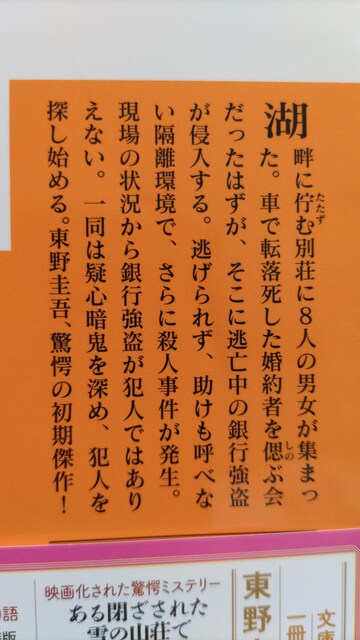 湖畔に佇む別荘に8人の男女が集まっ
た。車で転落死した婚約者を偲ぶ会
だったはずが、そこに逃亡中の銀行強盗
が侵入する。逃げられず、助けも呼べな
い隔離環境で、さらに殺人事件が発生。
現場の状況から銀行強盗が犯人ではあり
えない。一同は疑心暗鬼を深め、犯人を
探し始める。東野圭吾、驚愕の初期傑作！
文庫
一冊
東野
映画化された驚愕ミステリー
ある閉ざされた
雪の山荘で
語
版